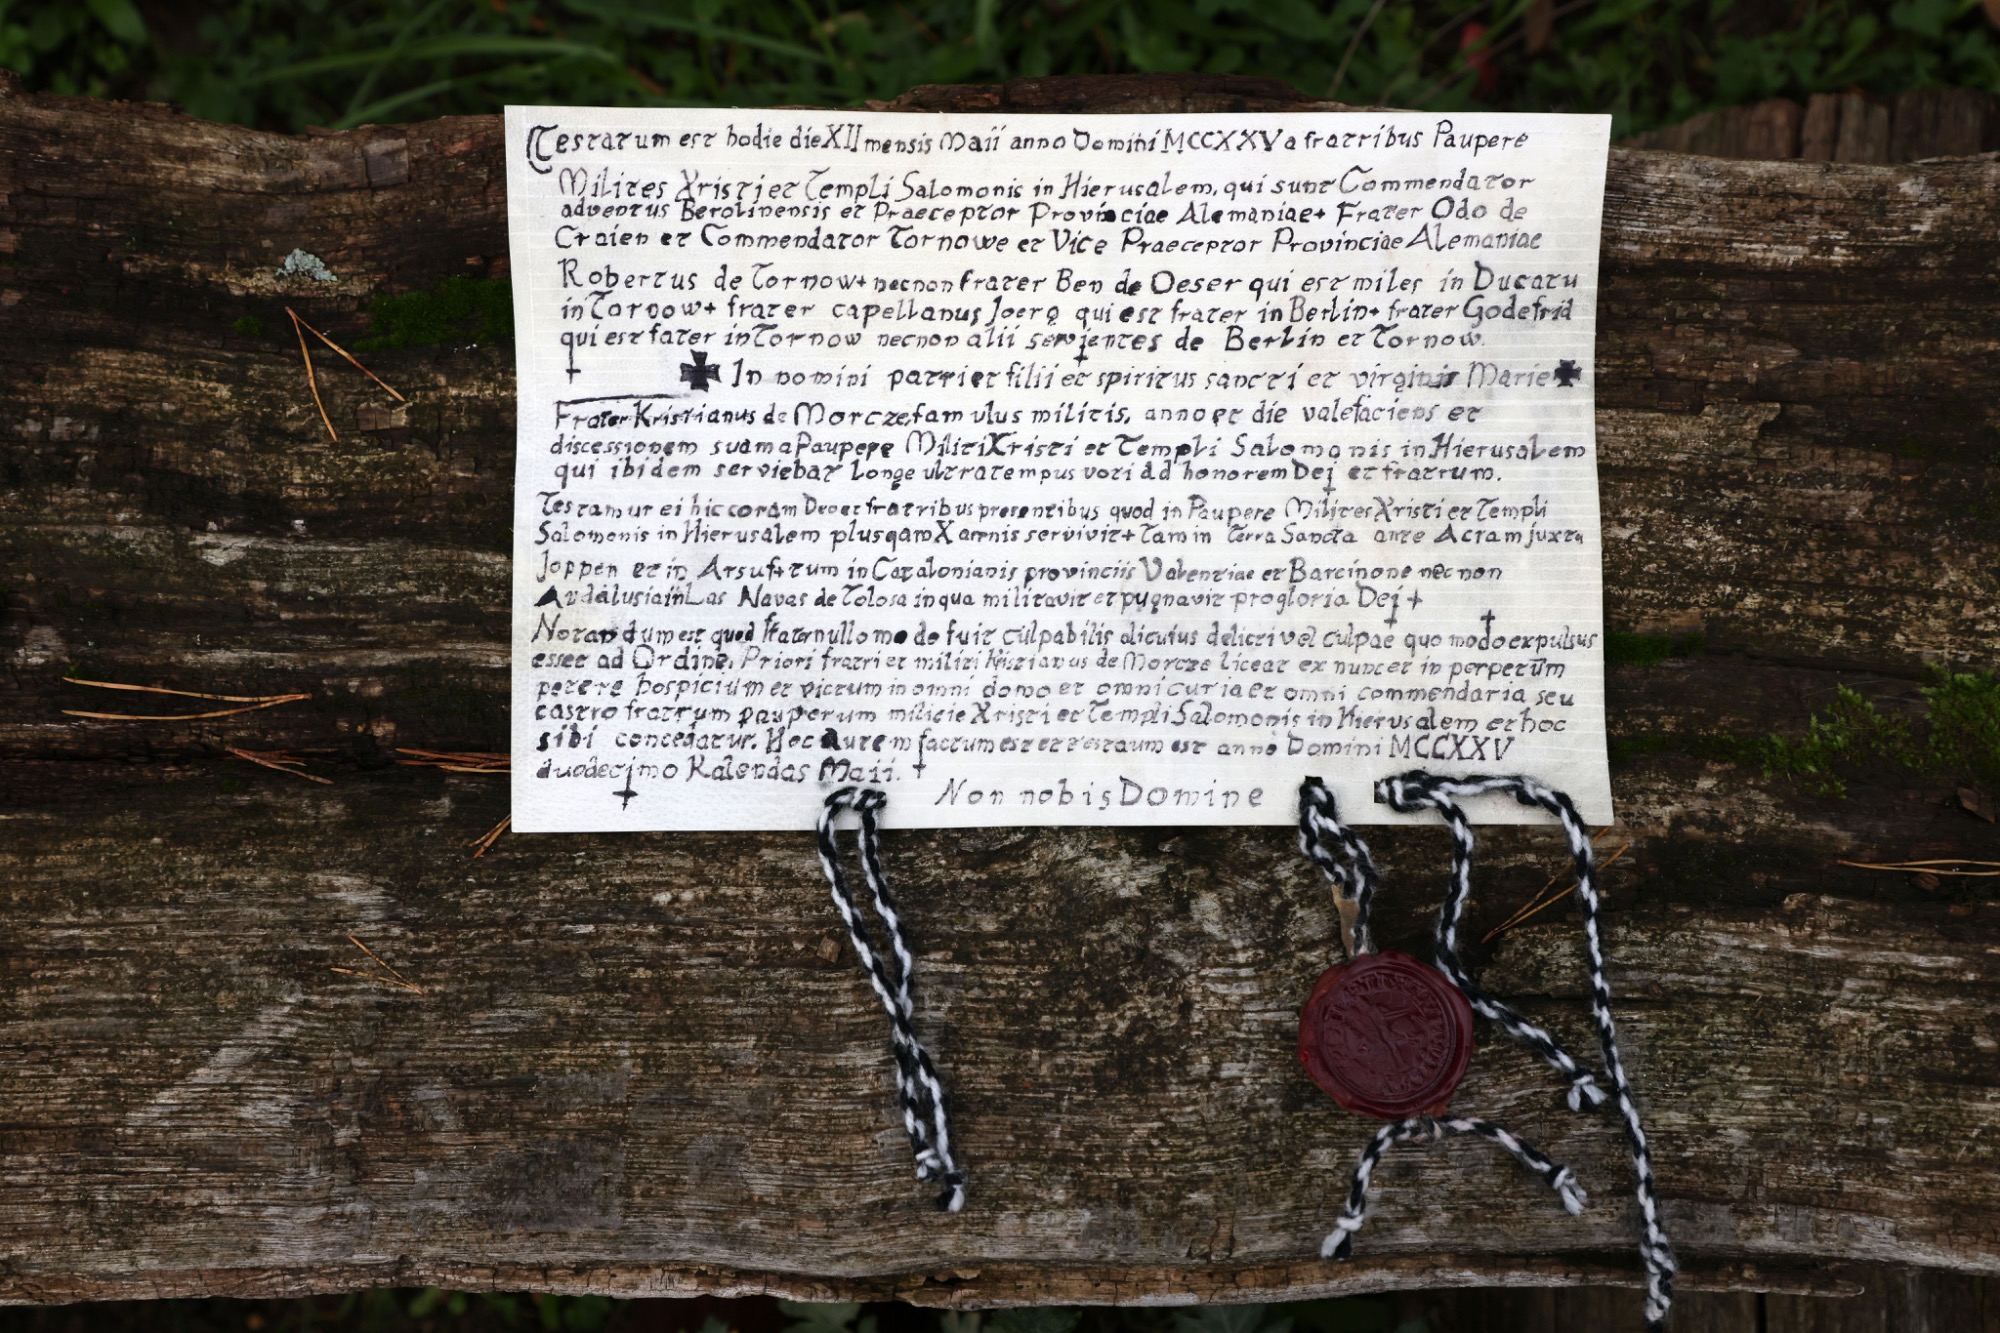 Testatum est hodie die XII mensis Maii anno Domini MCCXXV a fratribus Paupere
Milites Xristi et Templi Salomonis in Hierusalem, qui sunt Commendator
adventus Berolinensis et Praeceptor Provinciae Alemaniae+ Frater Odo de
Craien et Commendator Tornowe et Vice Praeceptor Provinciae Alemaniae
Robertus de Tornow+ necnon frater Ben de Oeser qui est miles in Ducatu
in Tornow+ frater capellanus Joerg qui est frater in Berlin+ frater Godefrid
qui est fater in Tornow necnon alii servientes de Berlin et Tornow.
In nomini patri et filii et spiritus sancti et virginis Marie
Frater Kristianus de Morcze, famulus militis, anno et die valefaciens et
discessionem suam a Paupere Militi Xristi et Templi Salomonis in Hierusalem
qui ibidem serviebat longe ultra tempus voti ad honorem Dei et fratrum.
Testamur ei hic coram Deo et fratribus presentibus quod in Paupere Milites Xristi et Templi
Salomonis in Hierusalem plus qam X annis servivit+ tam in Terra Sancta ante Acram juxta
Joppen et in Arsuf+ tum in Catalonianis provinciis Valentiae et Barcinone necnon
Andalusia in Las Navas de Tolosa in qua militavit et pugnavit pro gloria Dei +
Notandum est quod frater nullo modo fuit culpabilis alicuius delicti vel culpae quo modo expulsus
esset ad Ordine. Priori fratri et militi Kristianus de Morcze liceat ex nunc et in perpetūm
petere hospicium et victum in omni domo et omni curia et omni commendaria seu
castro fratrum pauperum milicie Xristi et Templi Salomonis in Hierusalem et hoc
sibi concedatur. Hoc autem factum est et testaum est anno Domini MCCXXV
duodecimo Kalendas Maii.
Non nobis Domine